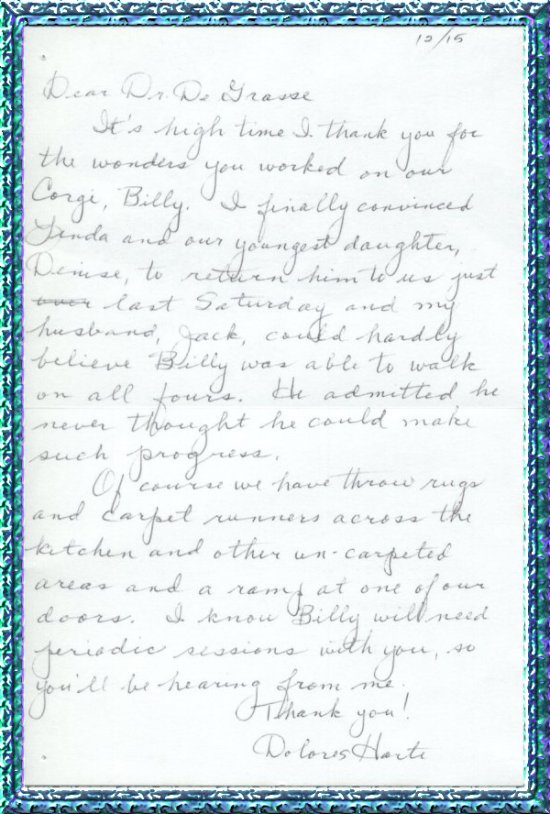 12/15
Dear Dr. De Grasse
It's high time I thank you for
the wonders you worked on our
Corgi, Billy. I finally convinced
Linda and our youngest daughter,
Denise, to return him to us just
over last Saturday and my
husband, Jack, could hardly
believe Billy was able to walk
on all fours. He admitted he
never thought he could make
such progress.
Of course we have throw rugs
and carpet runners across the
kitchen and other un-carpeted
areas and a ramp at one of our
doors. I know Billy will need
periodic sessions with you, so
you'll be hearing from me.
Thank you!
Dolores Harte